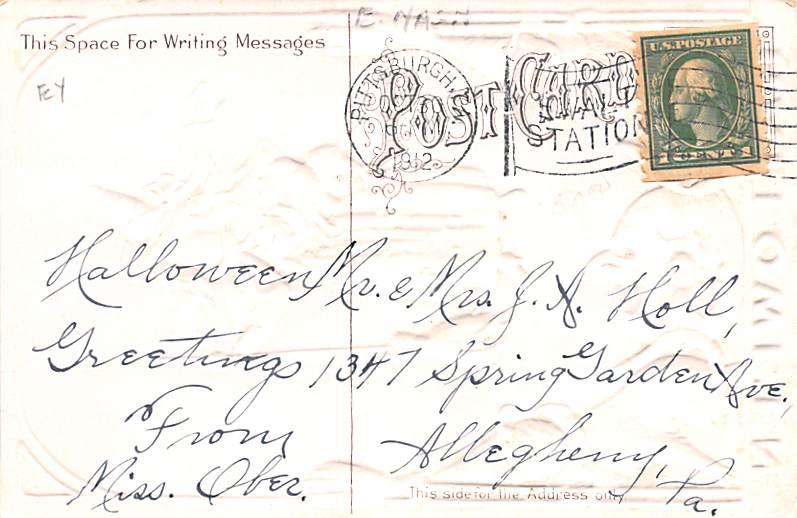 E. NASH
This Space For Writing Messages
POST CARD
PITTSBURGH,
1912
STATION
U.S. POSTAGE
1 CENT 1
Halloween
Greetings
From
Miss. Ober.
Mr. & Mrs. J. A. Holl,
1347 Spring Garden Ave.,
Allegheny,
Pa.
This side for the Address only